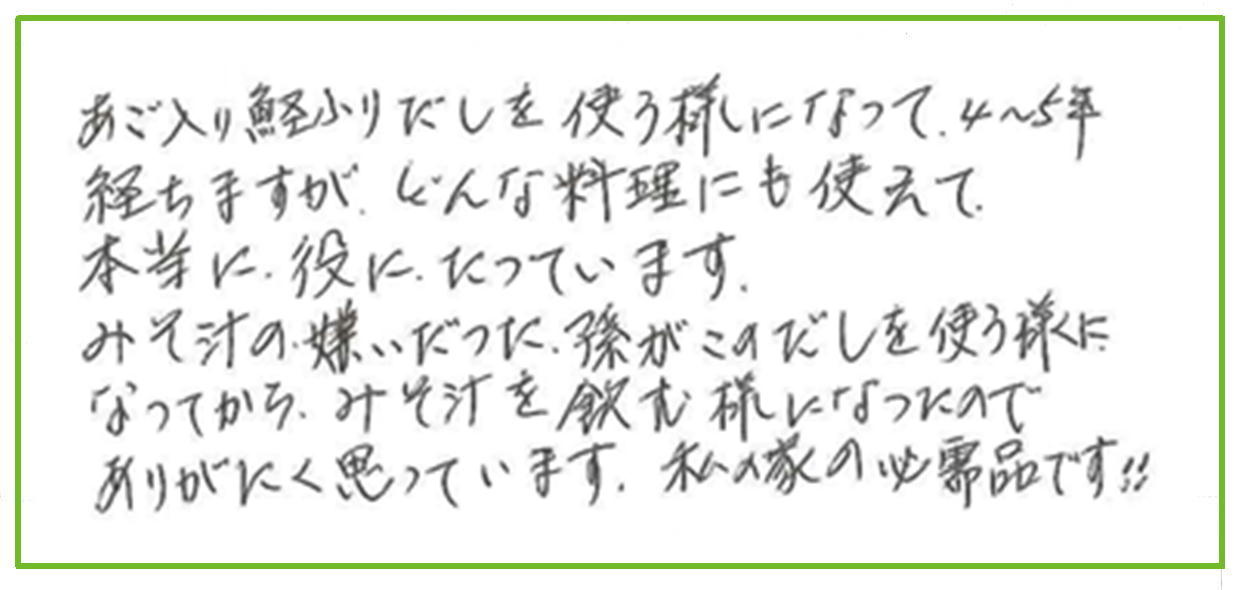 あご入り鰹ふりだしを使う様になって、4〜5年
経ちますが、どんな料理にも使えて、
本当に、役に、たっています。
みそ汁の嫌いだった、孫がこのだしを使う様に
なってから、みそ汁を飲む様になったので
ありがたく思っています。私の家の必需品です!!